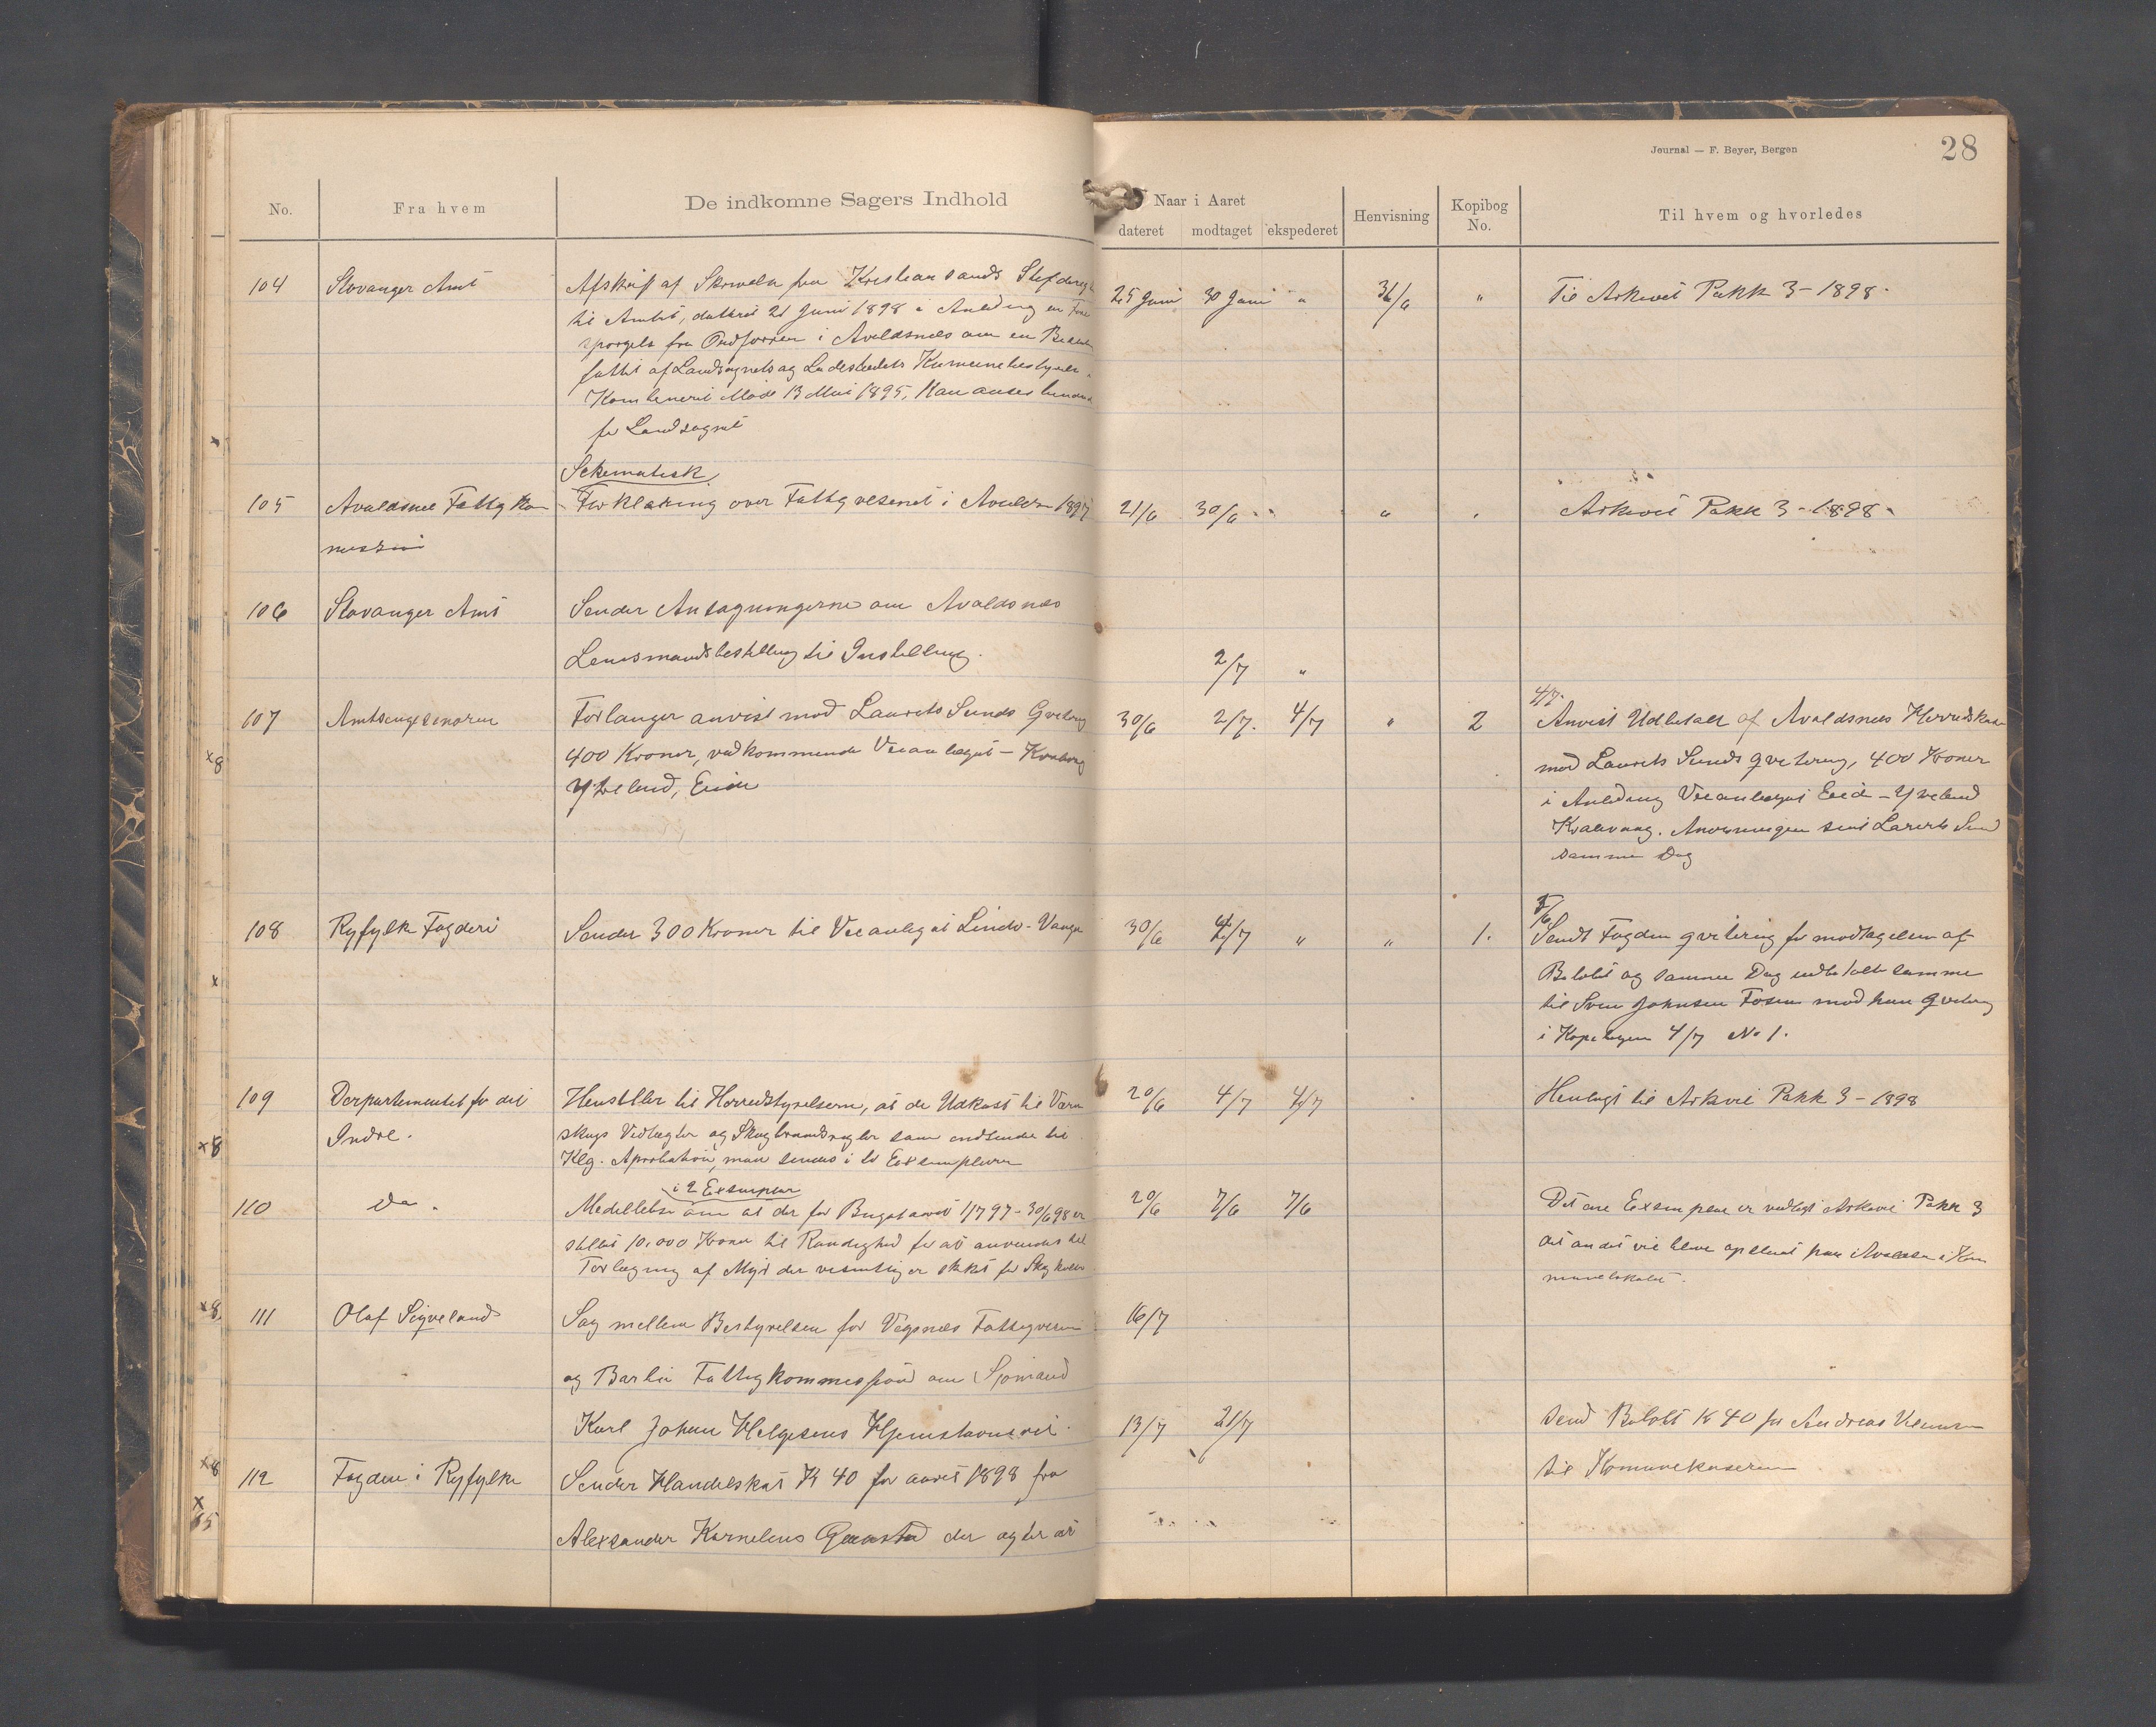 Journal — F. Beyer, Bergen
28
No.
Fra hvem
De indkomne Sagers Indhold
Naar i Aaret
dateret
modtaget
ekspederet
Henvisning
Kopibog No.
Til hvem og hvorledes
104
Stavanger Amt
Afskrift af Skrivelse fra Kristiansands Stifdireg
til Amtet, dateret 21 Juni 1898 i Anledning en Fore
spørgels fra Ordføreren i Avaldsnes om en
fattet af Landsognets og Ladestedets Kumunebestyrer
Kombineret Møde 13 Mai 1895, Kan anses
for Landsognet
25 Juni
30 Juni
"
"
Til Arkivet Pakk 3 - 1898.
105
Avaldsnes Fattigkom
mission
Schematisk
Forklaring over Fattigvesenet i Avaldsn 1897
21/6
30/6
"
Arkivet Pakk 3 - 1898.
106
Stavanger Amt
Sender Ansøgningerne om Avaldsnes
Lensmandsbestilling til Indstilling.
2/7
"
107
Amtsingeniøren
Forlanger anvist mod Laurits Sunds Qvitering
400 Kroner, vedkommende Veianlæget - Kvalavaag
Ytreland, Eide
30/6
2/7.
4/7
"
2
4/7.
Anvist Udbetalt af Avaldsnes Herredskasse
mod Laurits Sunds qvitering, 400 Kroner
i Anledning Veianlæget Eide - Ytreland
Kvalavaag. Anvisningen sent Laurits Sund
samme Dag
108
Ryfylke Fogderi
Sender 300 Kroner til Veianlæget Lindø - Vaage
30/6
4/7
"
"
1.
Sendt Fogden qvitering for modtagelsen af
Beløbet og samme Dag udbetalte samme
til Sven Johnsen Fosen mod han Qvitering
i Kopibogen 4/7 No 1.
109
Derpartementet for det
Indre.
Henstiller til Herredstyrelserne, at de Udkast til Værn
skogs Vedtægter og Skogbrandsregler som indsendes til
Klg. Aprobation, maa sendes i to Eksemplarer
20/6
4/7
4/7
Henlagt til Arkivet Pakk 3 - 1898
110
Do.
i 2 Exemplar
Meddellelse om at der for Bugetaaret 1/7 97 - 30/6 98 er
stillet 10.000 Kroner til Raadighed for at anvendes til
Torlægning af Myr der væsentlig er skikket for Skogkultur
20/6
7/6
7/6
Det ene Exemplar er vedlagt Arkivet Pakk 3
det andet vil blive opslaaet paa Avaldsn i Kom
munelokalet.
111
Olaf Sigveland
Sag mellem Bestyrelsen for Vigsnes Fattigvesen
og Fattigkommission om Sjømand
Karl Johan Helgesens Hjemstavnsret.
16/7
13/7
21/7
112
Fogden i Ryfylke
Sender Handelskat K 40 for aaret 1898 fra
Alexsander Kornelius der agter at
Send Beløbt K 40 for Andreas
til Komunekasseren